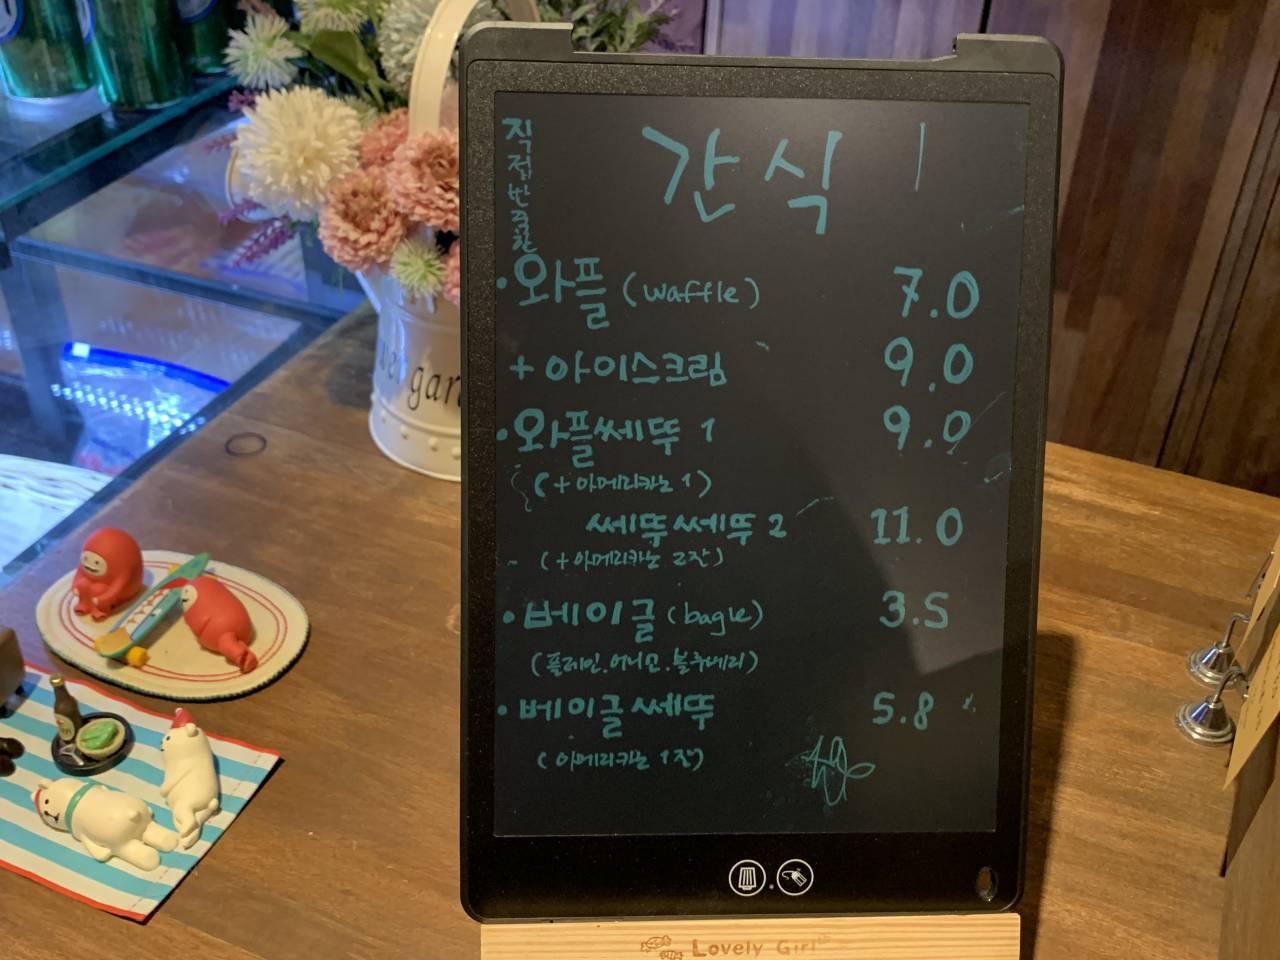 간식
직접반죽한
· 와플 (waffle) 7.0
+ 아이스크림 9.0
· 와플쎄뚜 1 9.0
(+아메리카노 1)
쎄뚜쎄뚜 2 11.0
(+아메리카노 2잔)
· 베이글 (bagle) 3.5
(플레인.어니언.블루베리)
· 베이글쎄뚜 5.8
(아메리카노 1잔)
gar
Lovely Girl